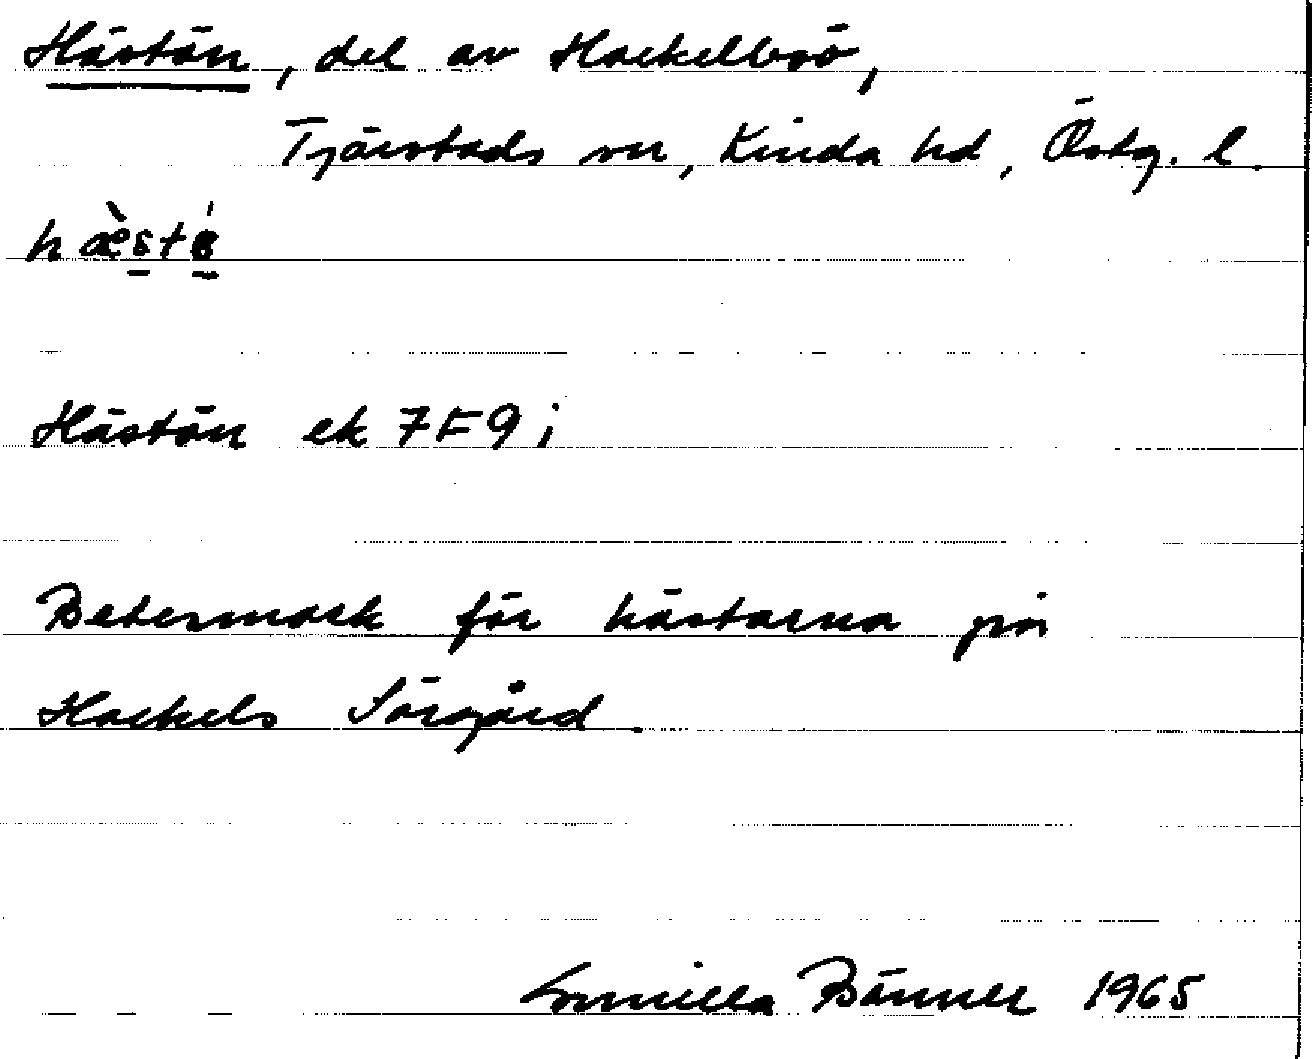 Hästön, del av Hackelboö,
Tjärstads sn, Kinda hd, Östg. l.
hæ̀stø̀
Hästön ek 7F9i
Betesmark för hästarna på
Hackels Sörgård.
Gunilla Bänner 1965